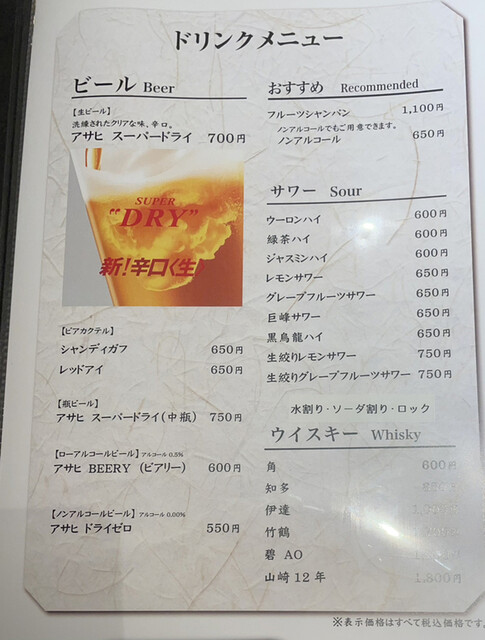 ドリンクメニュー
ビール Beer
【生ビール】
洗練されたクリアな味、辛口。
アサヒ スーパードライ 700円
SUPER
"DRY"
新!辛口〈生〉
【ビアカクテル】
シャンディガフ 650円
レッドアイ 650円
【瓶ビール】
アサヒ スーパードライ(中瓶) 750円
【ローアルコールビール】アルコール 0.5%
アサヒ BEERY (ビアリー) 600円
【ノンアルコールビール】アルコール 0.00%
アサヒ ドライゼロ 550円
おすすめ Recommended
フルーツシャンパン 1,100円
ノンアルコールでもご用意できます。
ノンアルコール 650円
サワー Sour
ウーロンハイ 600円
緑茶ハイ 600円
ジャスミンハイ 600円
レモンサワー 650円
グレープフルーツサワー 650円
巨峰サワー 650円
黒烏龍ハイ 650円
生絞りレモンサワー 750円
生絞りグレープフルーツサワー 750円
水割り・ソーダ割り・ロック
ウイスキー Whisky
角 600円
知多
伊達
竹鶴
碧 AO
山崎12年 1,800円
※表示価格はすべて税込価格です。